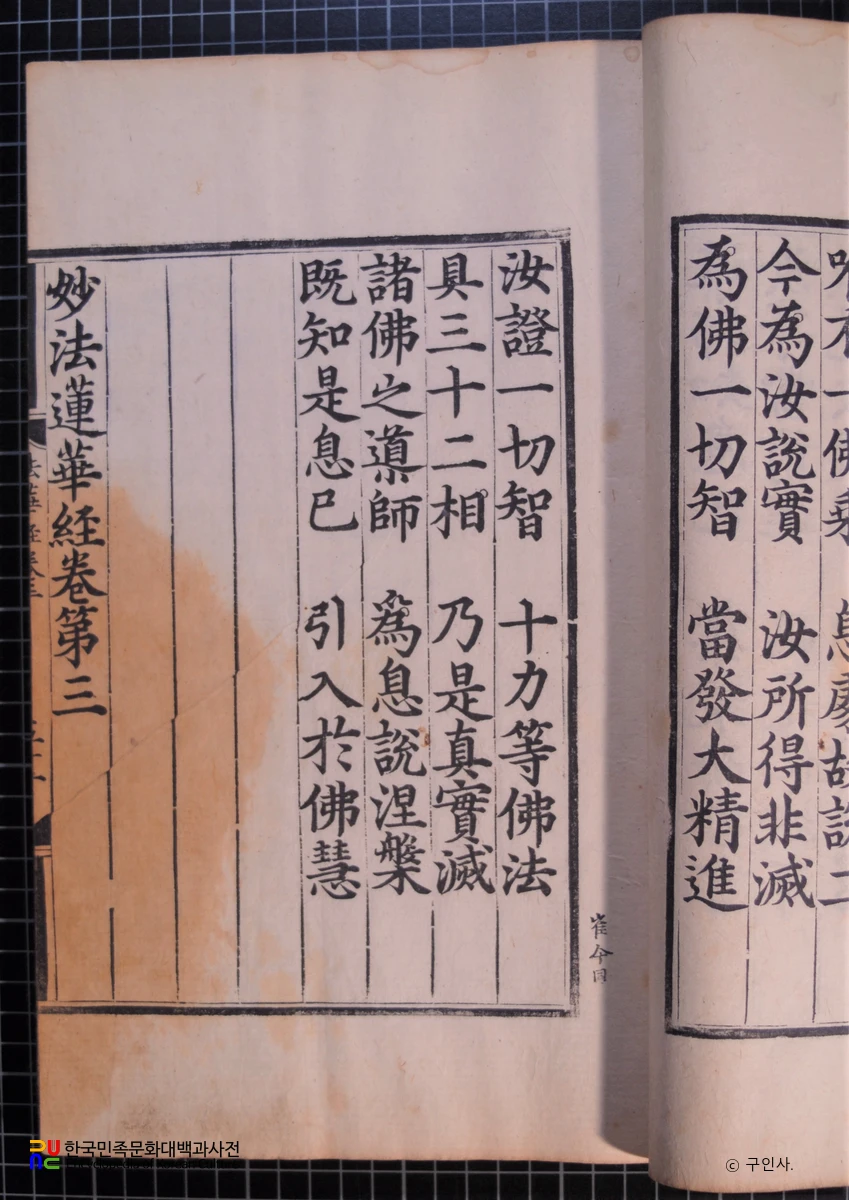 今為汝說實 汝所得非滅
為佛一切智 當發大精進
汝證一切智 十力等佛法
具三十二相 乃是真實滅
諸佛之導師 為息說涅槃
既知是息已 引入於佛慧
妙法蓮華経卷第三
한국민족문화대백과사전
© 구인사.